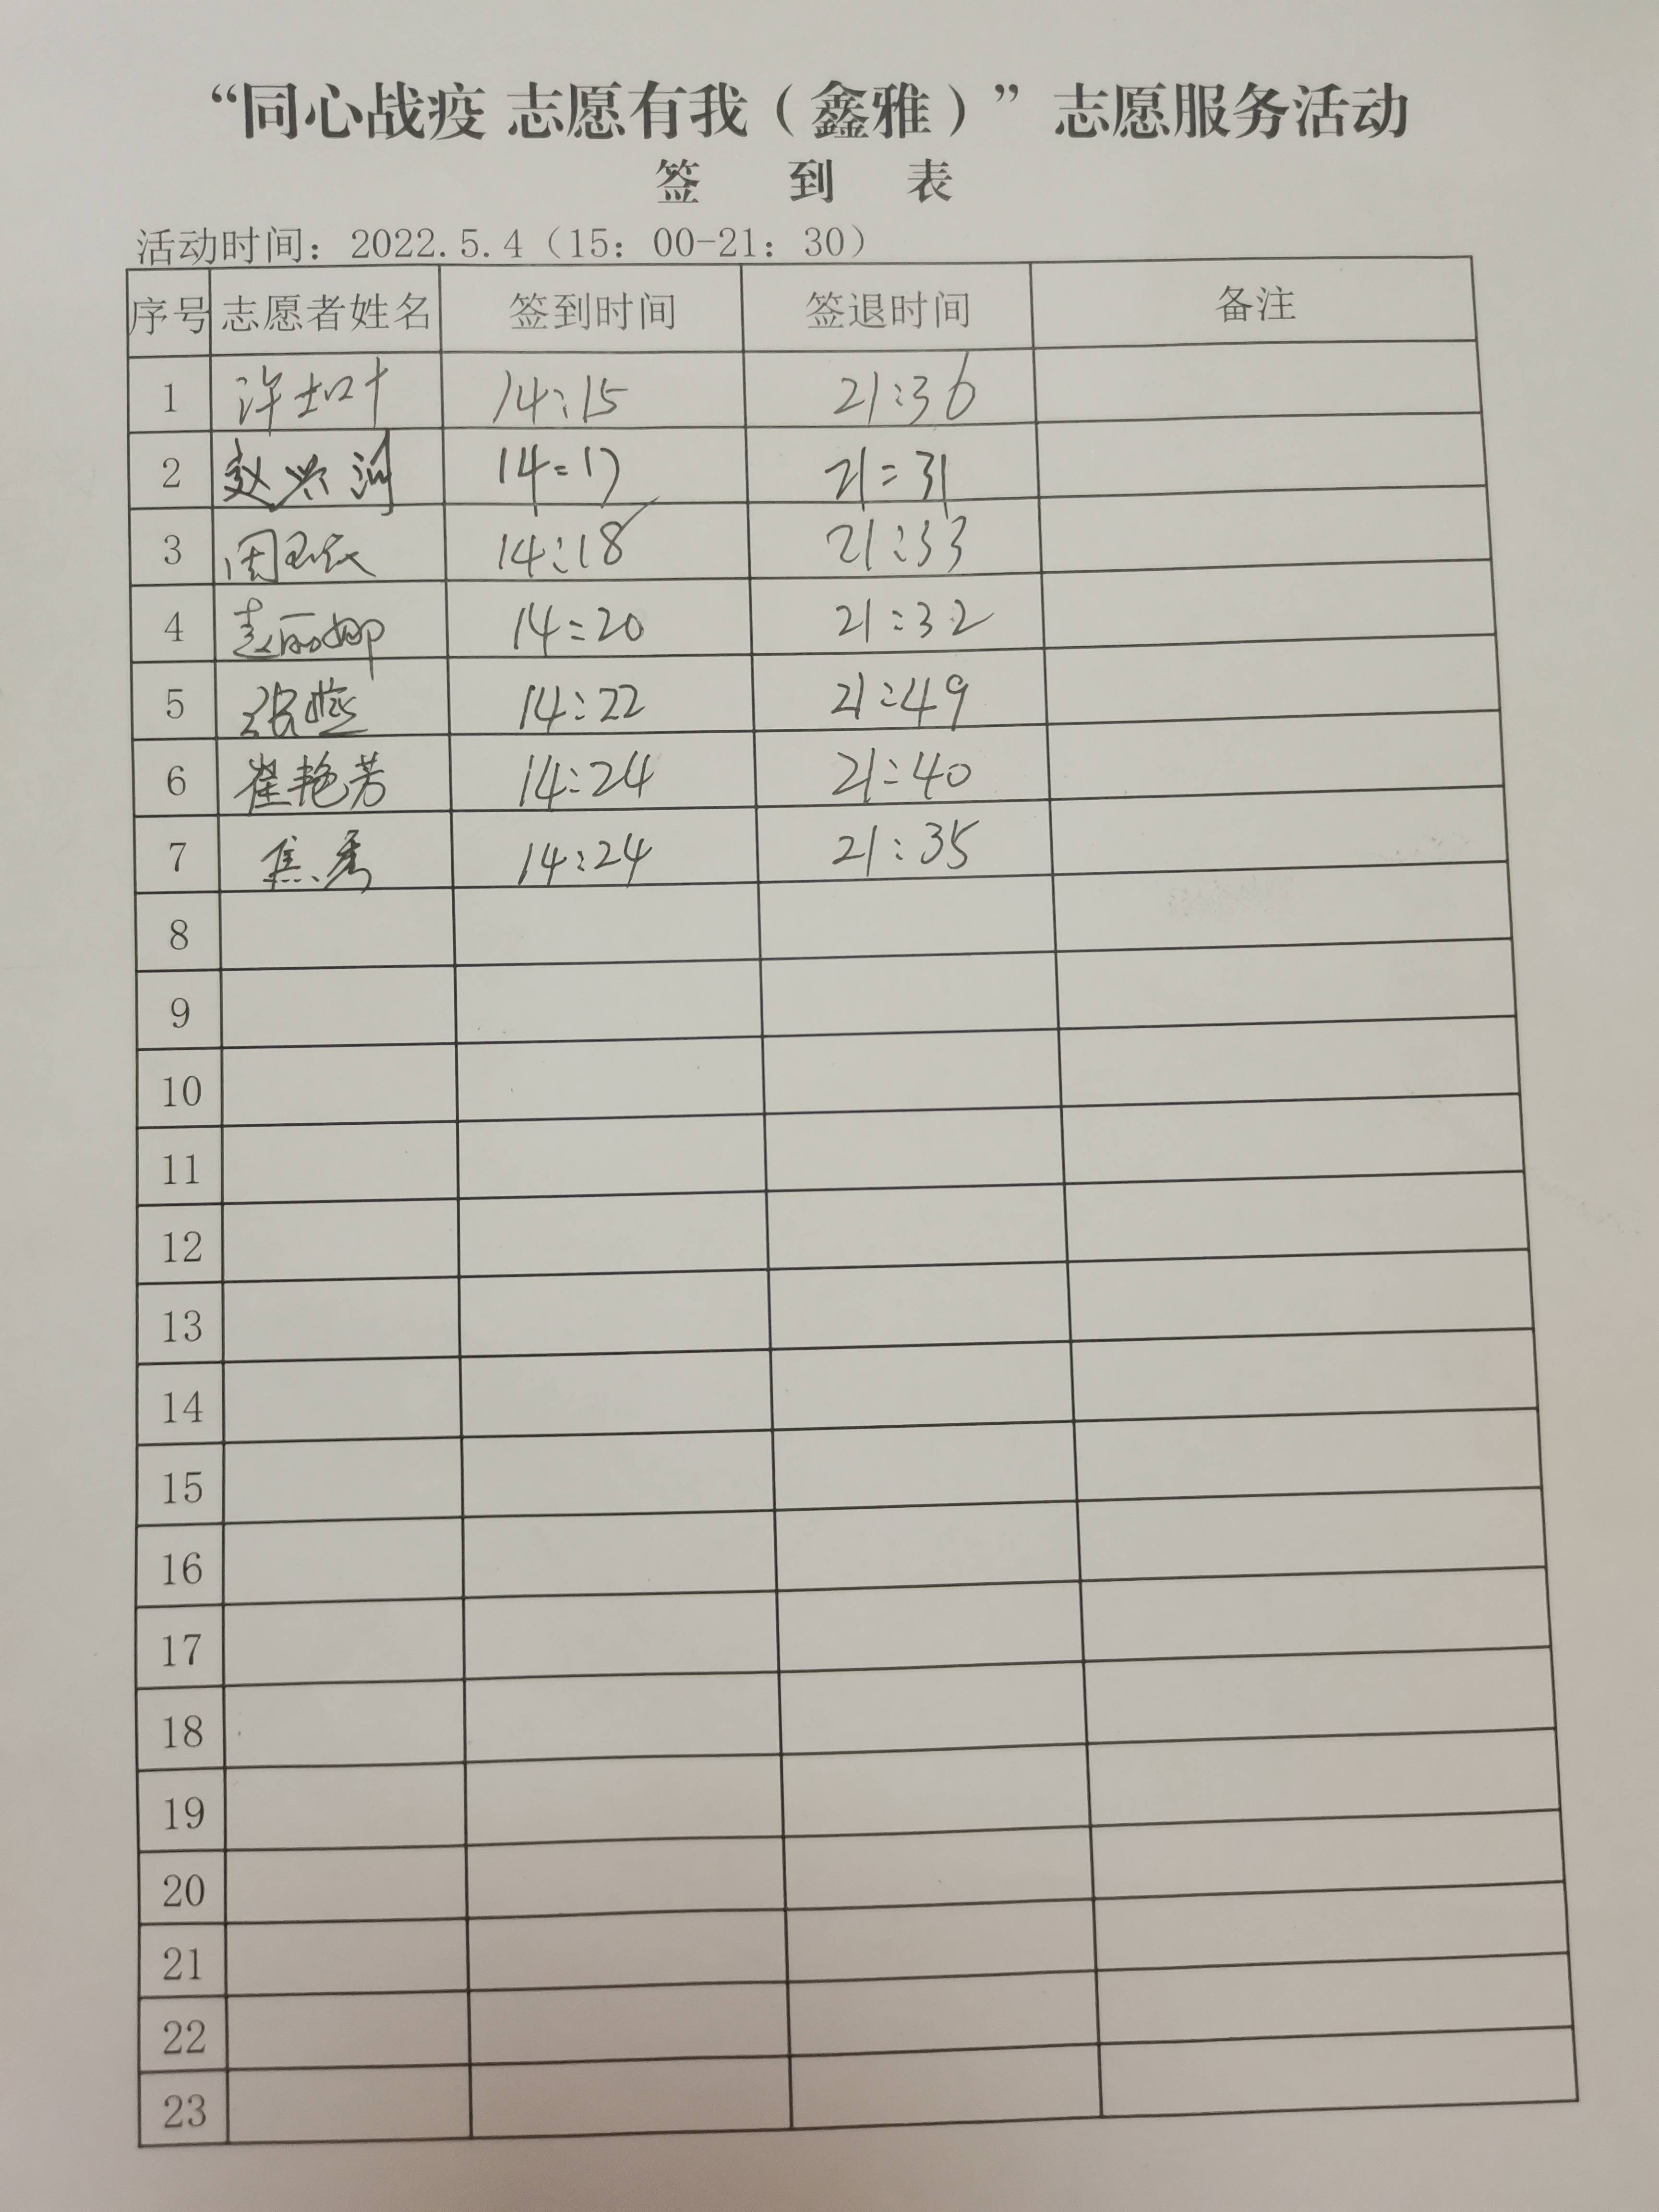 “同心战疫 志愿有我（鑫雅）”志愿服务活动
签 到 表
活动时间：2022.5.4（15：00-21：30）
序号 志愿者姓名 签到时间 签退时间 备注
1 14:15 21:36
2 14:17 21:31
3 14:18 21:33
4 孟丽娜 14:20 21:32
5 14:22 21:49
6 崔艳芳 14:24 21:40
7 焦秀 14:24 21:35
8
9
10
11
12
13
14
15
16
17
18
19
20
21
22
23